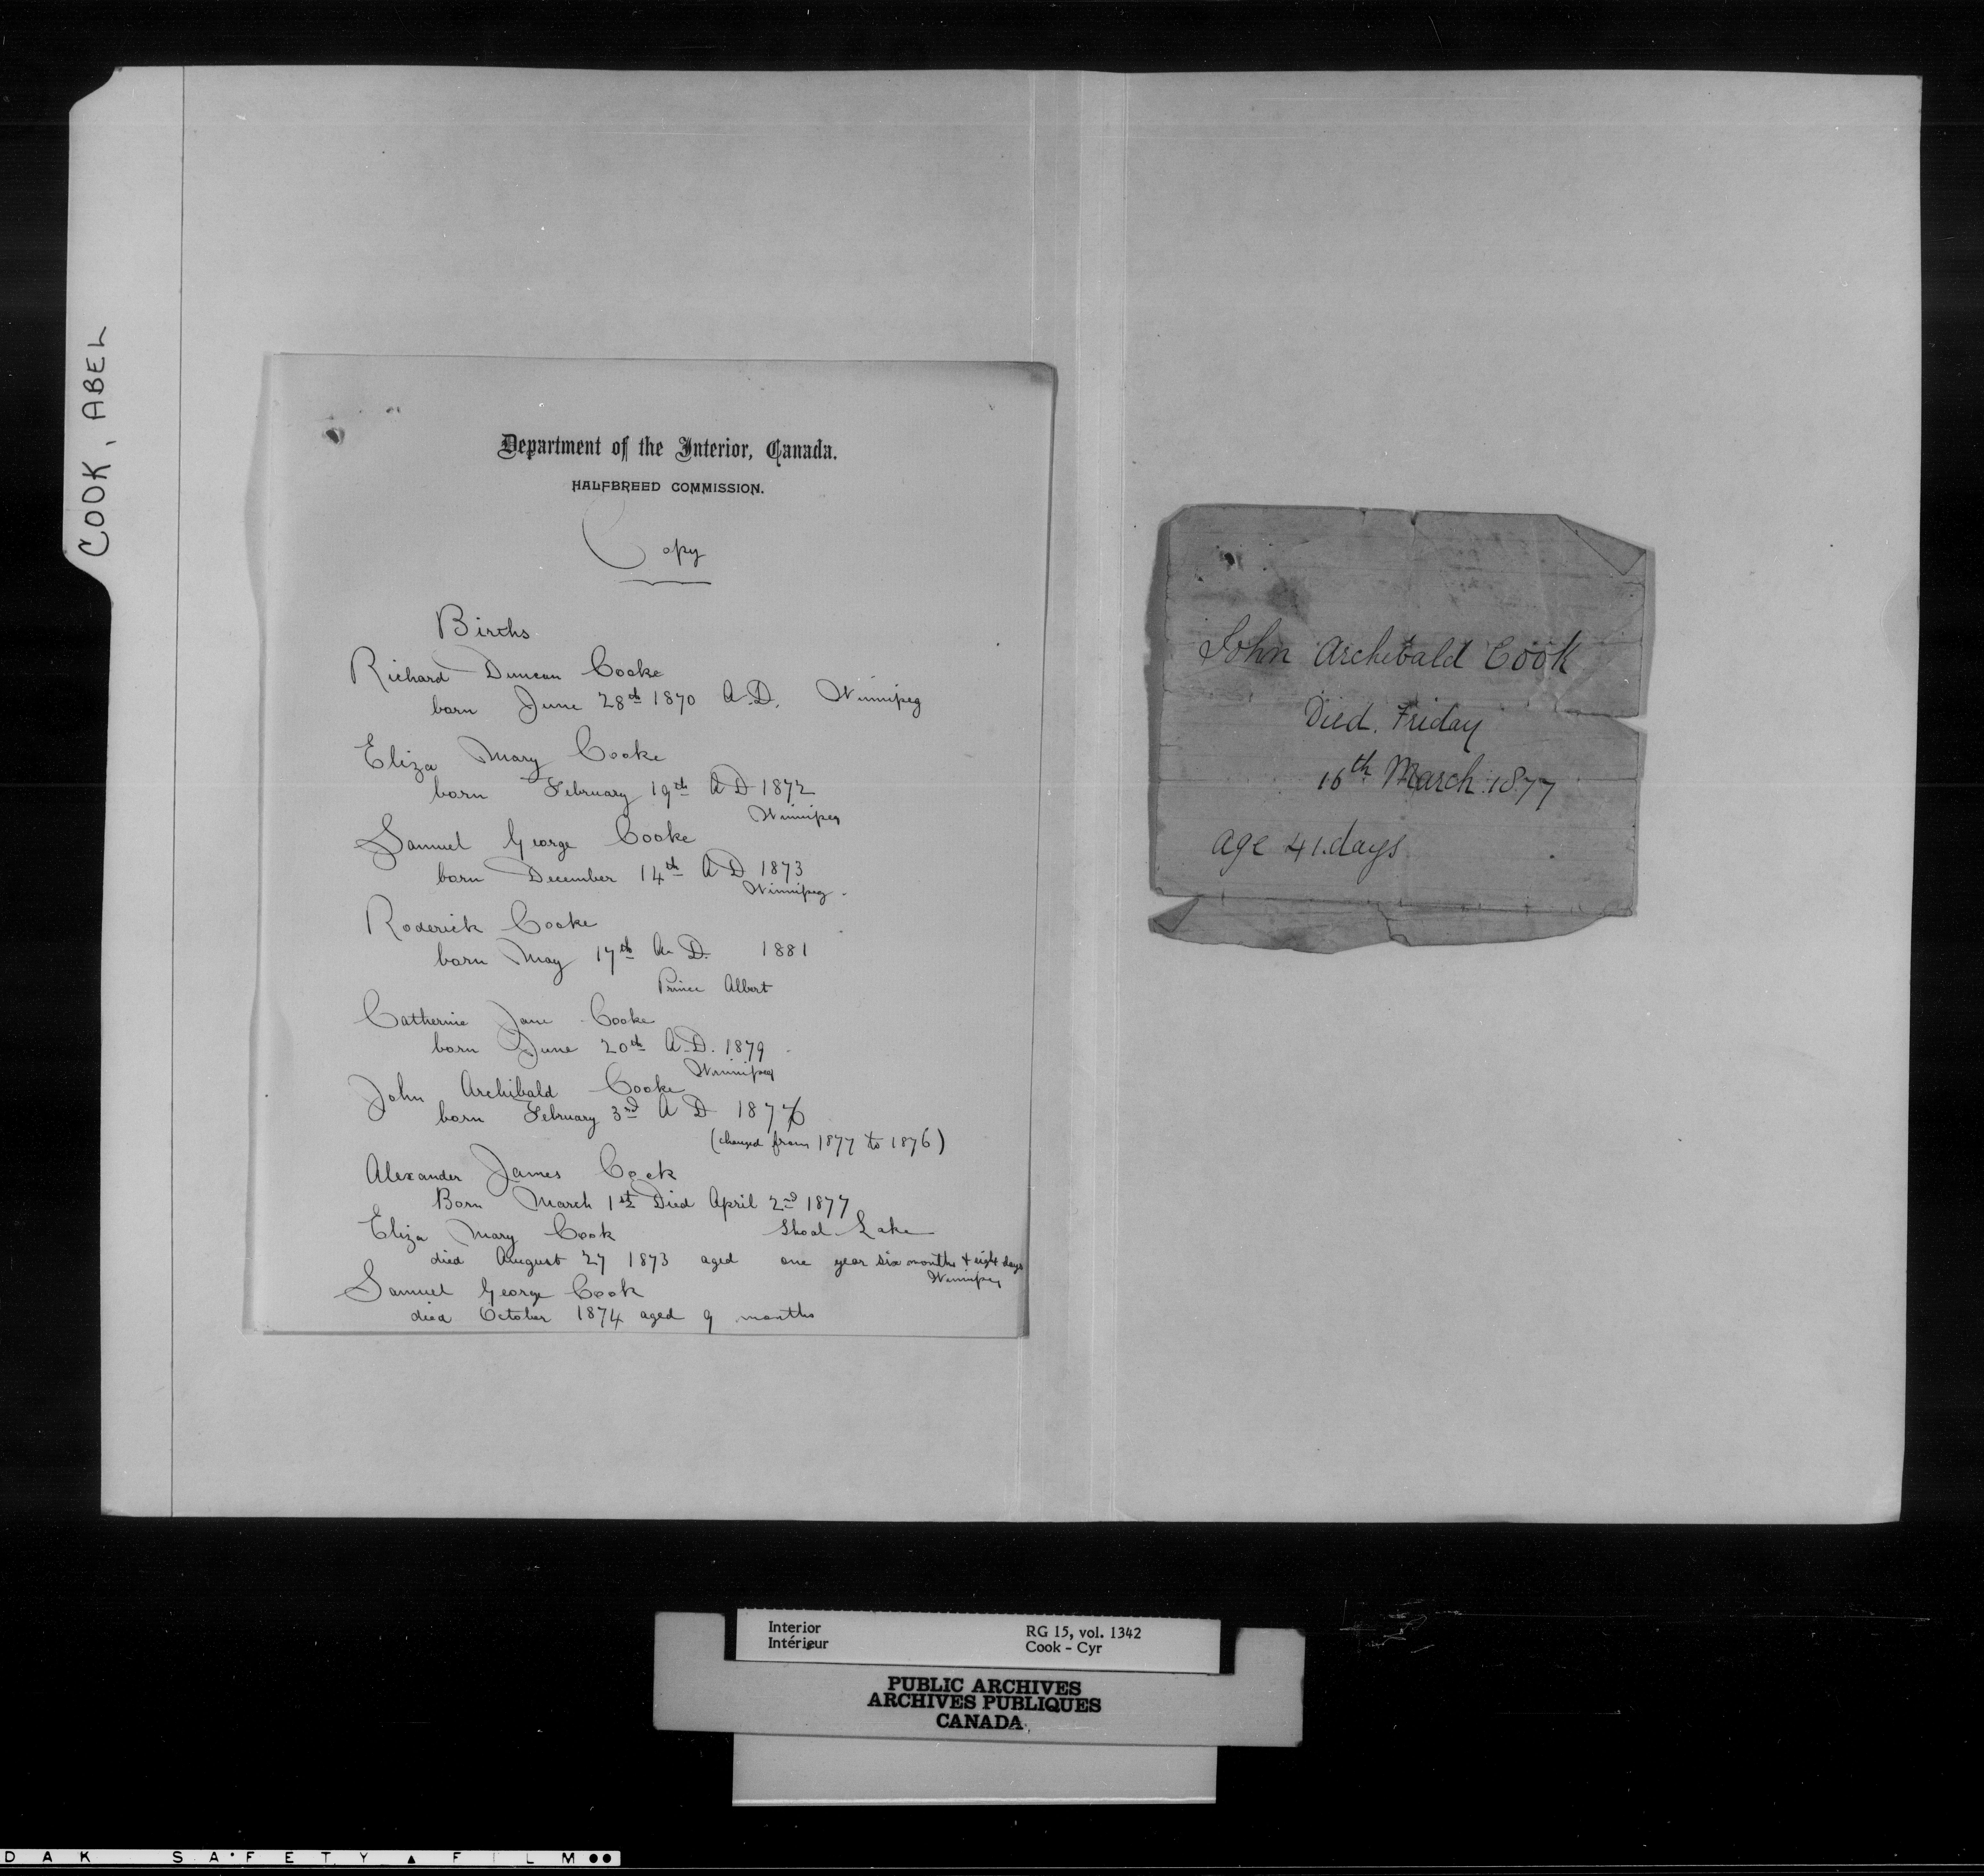 COOK, ABEL
Department of the Interior, Canada.
HALFBREED COMMISSION.
Copy
Births
Richard Duncan Cooke
born June 28th 1870 A.D. Winnipeg
Eliza Mary Cooke
born February 19th A D 1872
Winnipeg
Samuel George Cooke
born December 14th A D 1873
Winnipeg -
Roderick Cooke
born May 17th A. D. 1881
Prince Albert
Catherine Jane Cooke
born June 20th A.D. 1879
Winnipeg
John Archibald Cooke
born February 3rd A D 1876
(changed from 1877 to 1876)
Alexander James Cook
Born March 1st Died April 2nd 1877
Eliza Mary Cook Shoal Lake
died August 27 1873 aged one year six months & eight days
Winnipeg
Samuel George Cook
died October 1874 aged 9 months
John Archibald Cook
Died. Friday
16th March 1877
age 41 days
Interior
Intérieur
RG 15, vol. 1342
Cook - Cyr
PUBLIC ARCHIVES
ARCHIVES PUBLIQUES
CANADA
DAK SAFETY FILM